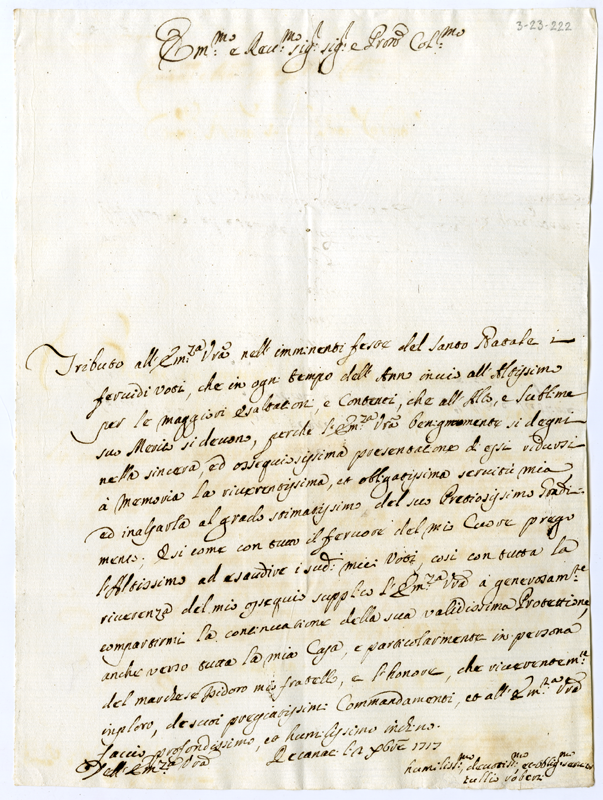 3-23-222
Em.mo e Rev.mo Sig.r Sig.r e Pron Col.mo
Tributo all'Em.za Vra nell'imminenti feste del Santo Natale i
feruidi Voti, che in ogni tempo dell'Anno inuio all'Altissimo
per le maggiori Esaltationi, e Contenti, che all'Alto, e Sublime
suo Merito si deuono, perche l'Em.za Vra benignamente si degni
nella sincera, ed ossequiosissima presentatione di essi ridursi
à Memoria la riuerentissima, et obligatissima seruitù mia
ed inalzarla al grado stimatissimo del suo Pretiosissimo Gradi-
mento; E si come con tutto il feruore del mio Cuore prego
l'Altissimo ad esaudire i sud.i miei Voti, così con tutta la
riuerenza del mio ossequio supplico l'Em.za Vra à generosam.te
compartirmi la continuatione della sua validissima Protettione,
anche verso tutta la mia Casa, e particolarmente in persona
del marchese Isidoro mio fratello, e l'honore, che riuerentem.te
inploro, de suoi pregiatissimi Commandamenti, et all'Em.za Vra
faccio profondissimo, et humilissimo inchino.
Dell'Em.za Vra Recanati li Xbre 1717
humiliss.mo, deuotiss.mo, et oblig.mo seruitore
Tullio